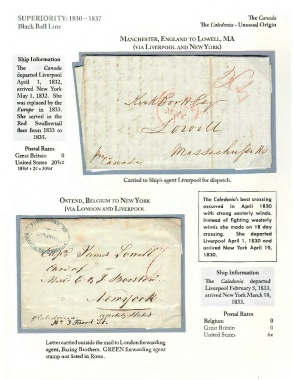 SUPERIORITY: 1830 - 1837
Black Ball Line
The Canada
The Caledonia - Unusual Origin
MANCHESTER, ENGLAND TO LOWELL, MA
(VIA LIVERPOOL AND NEW YORK)
Ship Information
The Canada
departed Liverpool
April 1, 1832,
arrived New York
May 1, 1832. She
was replaced by the
Europe in 1833.
She served in the
Red Swallowtail
fleet from 1833 to
1835.
Postal Rates
Great Britain: 0
United States 20¾¢
Kirk Boott Esq
Lowell
Massachusetts
Canada
Carried to Ship's agent Liverpool for dispatch.
OSTEND, BELGIUM TO NEW YORK
(VIA LONDON AND LIVERPOOL
Capt. James Lowell
New York
Letter carried outside the mail to London forwarding
agent, Baring Brothers. GREEN forwarding agent
stamp not listed in Rowe.
The Caledonia's best crossing
occurred in April 1830
with strong easterly winds.
Instead of fighting westerly
winds she made on 18 day
crossing. She departed
Liverpool April 1, 1830 and
arrived New York April 19,
1830.
Ship Information
The Caledonia departed
Liverpool February 5, 1833,
arrived New York March 18,
1833.
Postal Rates
Belgium: 0
Great Britain 0
United States 6¢